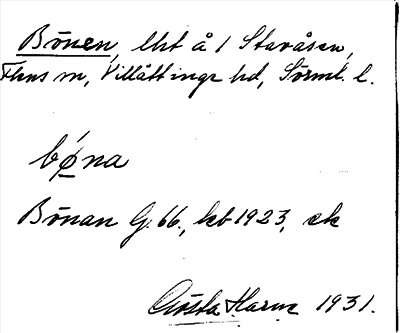 Bönen, lht å 1 Stavåsen,
Flens sn, Villåttinge hd, Sörml. l.
bǿna
Bönan G. 66., kb 1923, ek
Gösta Harne 1931.